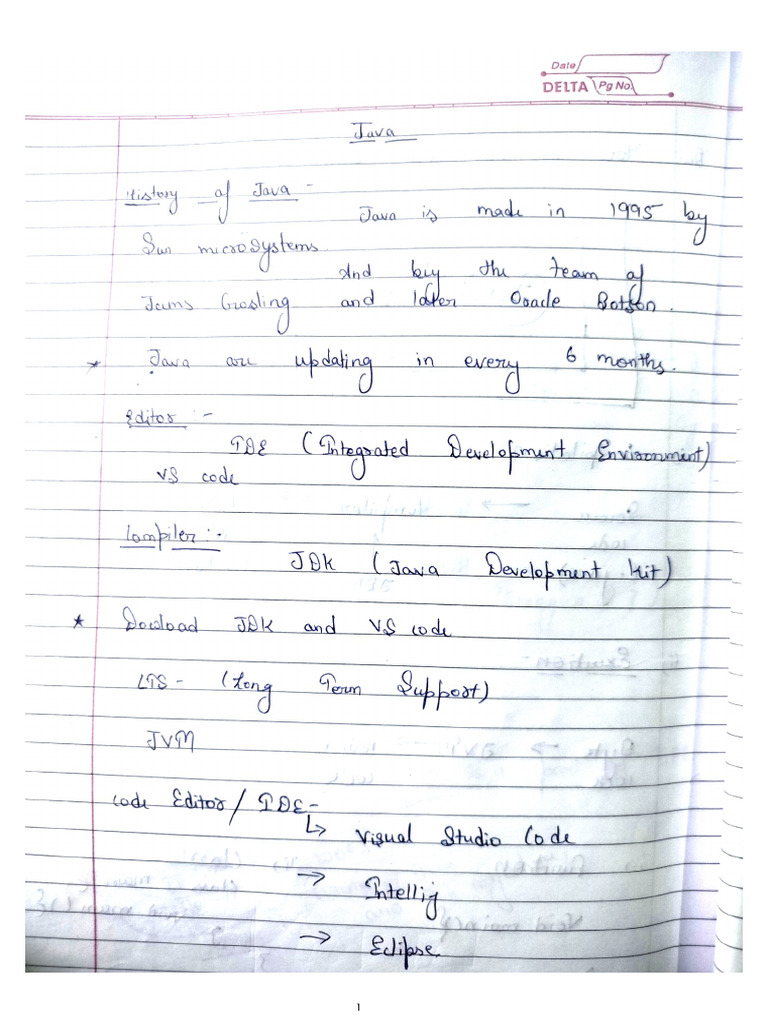 Date
DELTA Pg No.
Java
History of Java -
Java is made in 1995 by
Sun microsystems.
And by the team of
Jams Grosling and later Oracle
* Java are updating in every 6 months.
Editor :-
IDE (Integrated Development Environment)
VS code
Compiler :-
JDK (Java Development kit)
* Dowload JDK and VS code
LTS - (Long Term Support)
JVM
code Editor / IDE -
↳ Visual Studio Code
→ Intellij
→ Eclipse
1